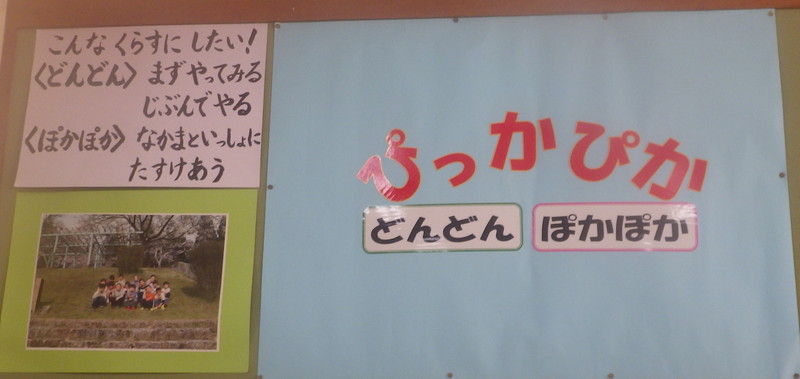 こんな くらすに したい!
〈どんどん〉 まず やってみる
じぶんで やる
〈ぽかぽか〉 なかまと いっしょに
たすけあう
ぴっかぴか
どんどん ぽかぽか